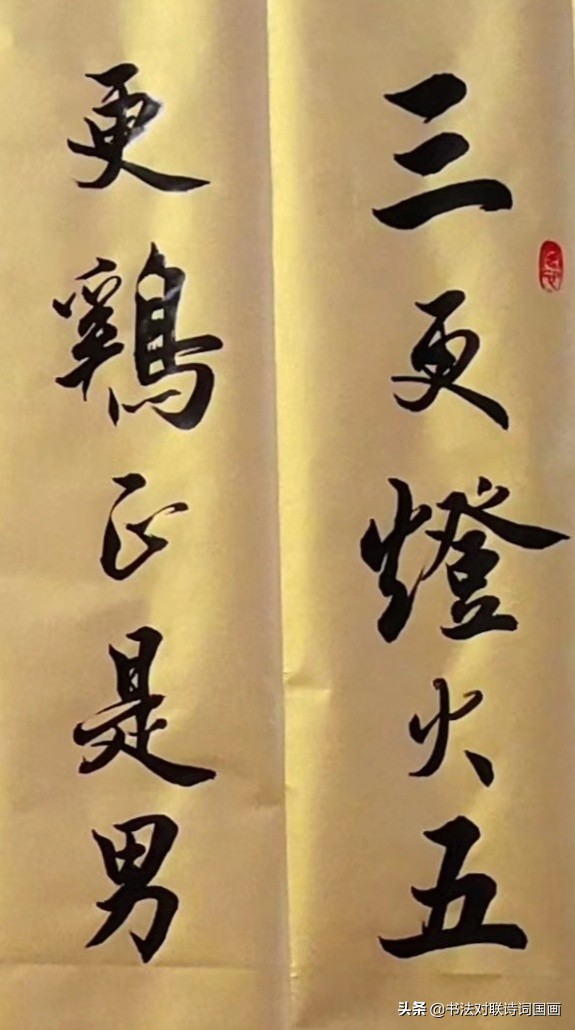 三更燈火五
更鷄正是男
头条 @书法对联诗词国画